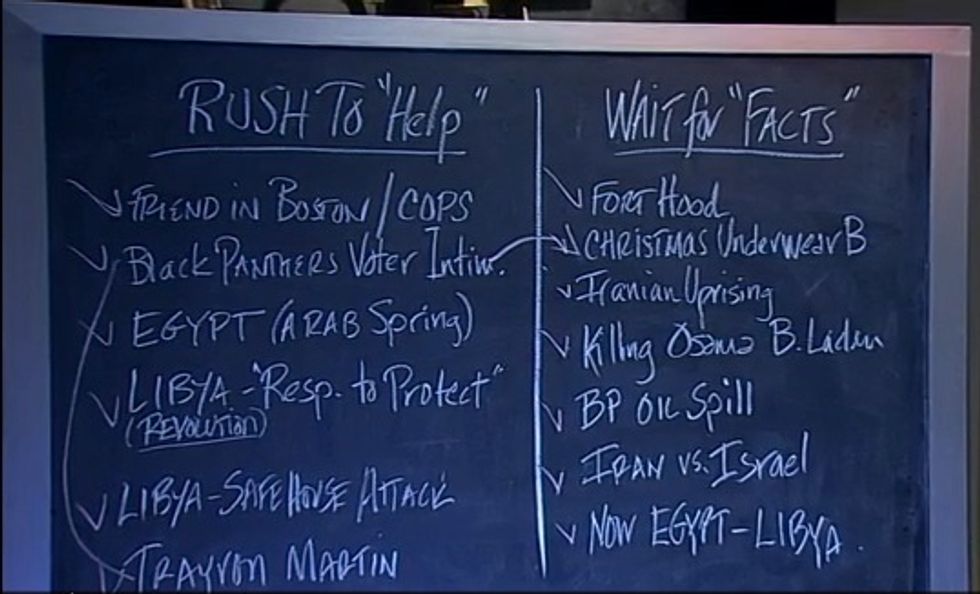 RUSH TO "Help"
FRIEND IN BOSTON / COPS
Black PANTHERS Voter Intim.
EGYPT (ARAB Spring)
LIBYA - "Resp. to Protect"
(REVOLUTION)
LIBYA - SAFE HOUSE ATTACK
TRAYVON MARTIN
WAIT for "FACTS"
FORT HOOD
CHRISTMAS Underwear B
Iranian Uprising
Killing Osama B. Laden
BP OIL Spill
IRAN vs. Israel
NOW EGYPT - LIBYA.